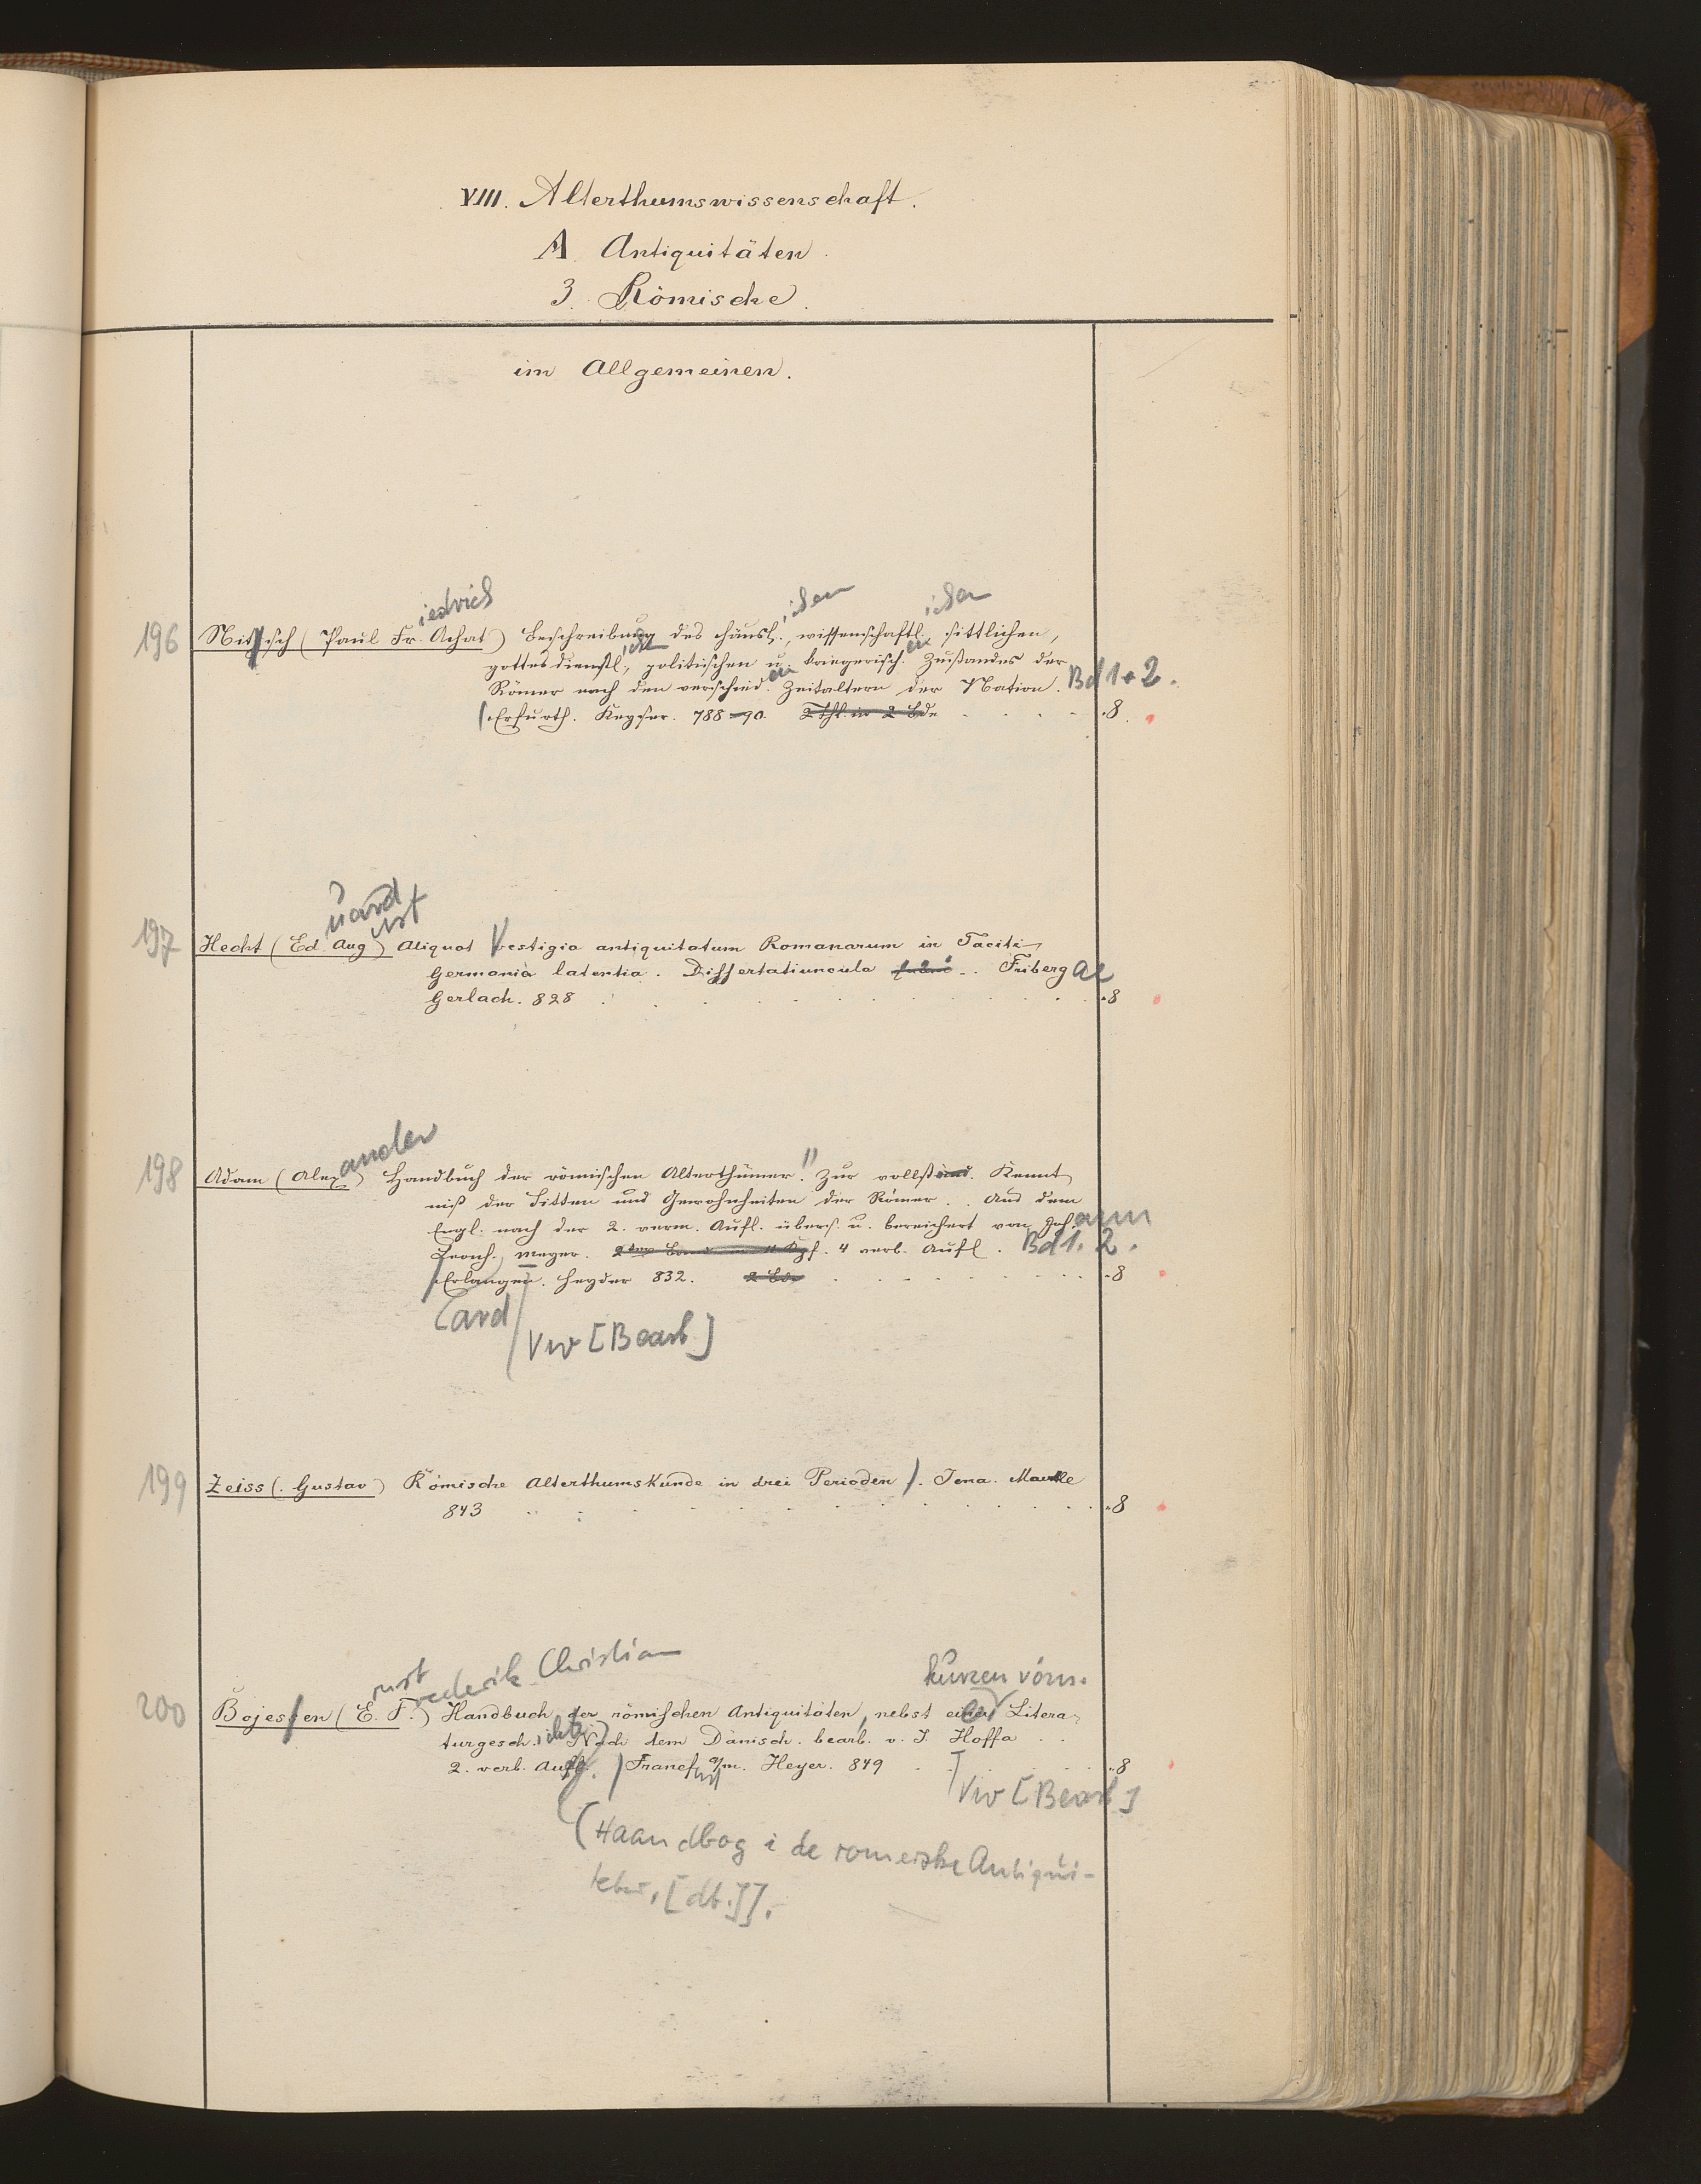 VIII. Alterthumswissenschaft.
A. Antiquitäten.
3. Römische.
im Allgemeinen.
iedrich ischen ischen
196 Nitzsch (Paul Fr. Achat) Beschreibung des häusl., wissenschaftl., sittlichen,
gottesdienstl., politischen u. kriegerisch. Zustandes der
Römer nach den verschied. Zeitaltern der Nation. Bd 1+2.
Erfurth. Keyser. 788-90. 2 Thl. in 2 Bde 8.
uard ust
197 Hecht (Ed. Aug) Aliquot Vestigia antiquitatum Romanarum in Taciti
Germania latentia. Dissertatiuncula Friberg ae
Gerlach. 828 8
ander
198 Adam (Alex) Handbuch der römischen Alterthümer. Zur vollständ. Kennt
niß der Sitten und Gewohnheiten der Römer. Aus dem
Engl. nach der 2. verm. Aufl. übers. u. bereichert von Joh. ann
Leonh. Meyer. 4 verb. Aufl. Bd 1. 2.
Erlangen. Heyder 832. 2 Bde 8
ard
[Bearb]
199 Zeiss (Gustav) Römische Alterthumskunde in drei Perioden. Jena. Mauke
843 8
rnst rederik Christian kurzen röm.
200 Bojesen (E. F.) Handbuch der römischen Antiquitäten, nebst einer Litera
turgesch. ichte Nach dem Dänisch. bearb. v. J. Hoffa
2. verb. Aufl. Francf a/m. Heyer. 849 8
[Bearb]
(Haandbog i de romerske Antiqui-
teter, [dt.]].